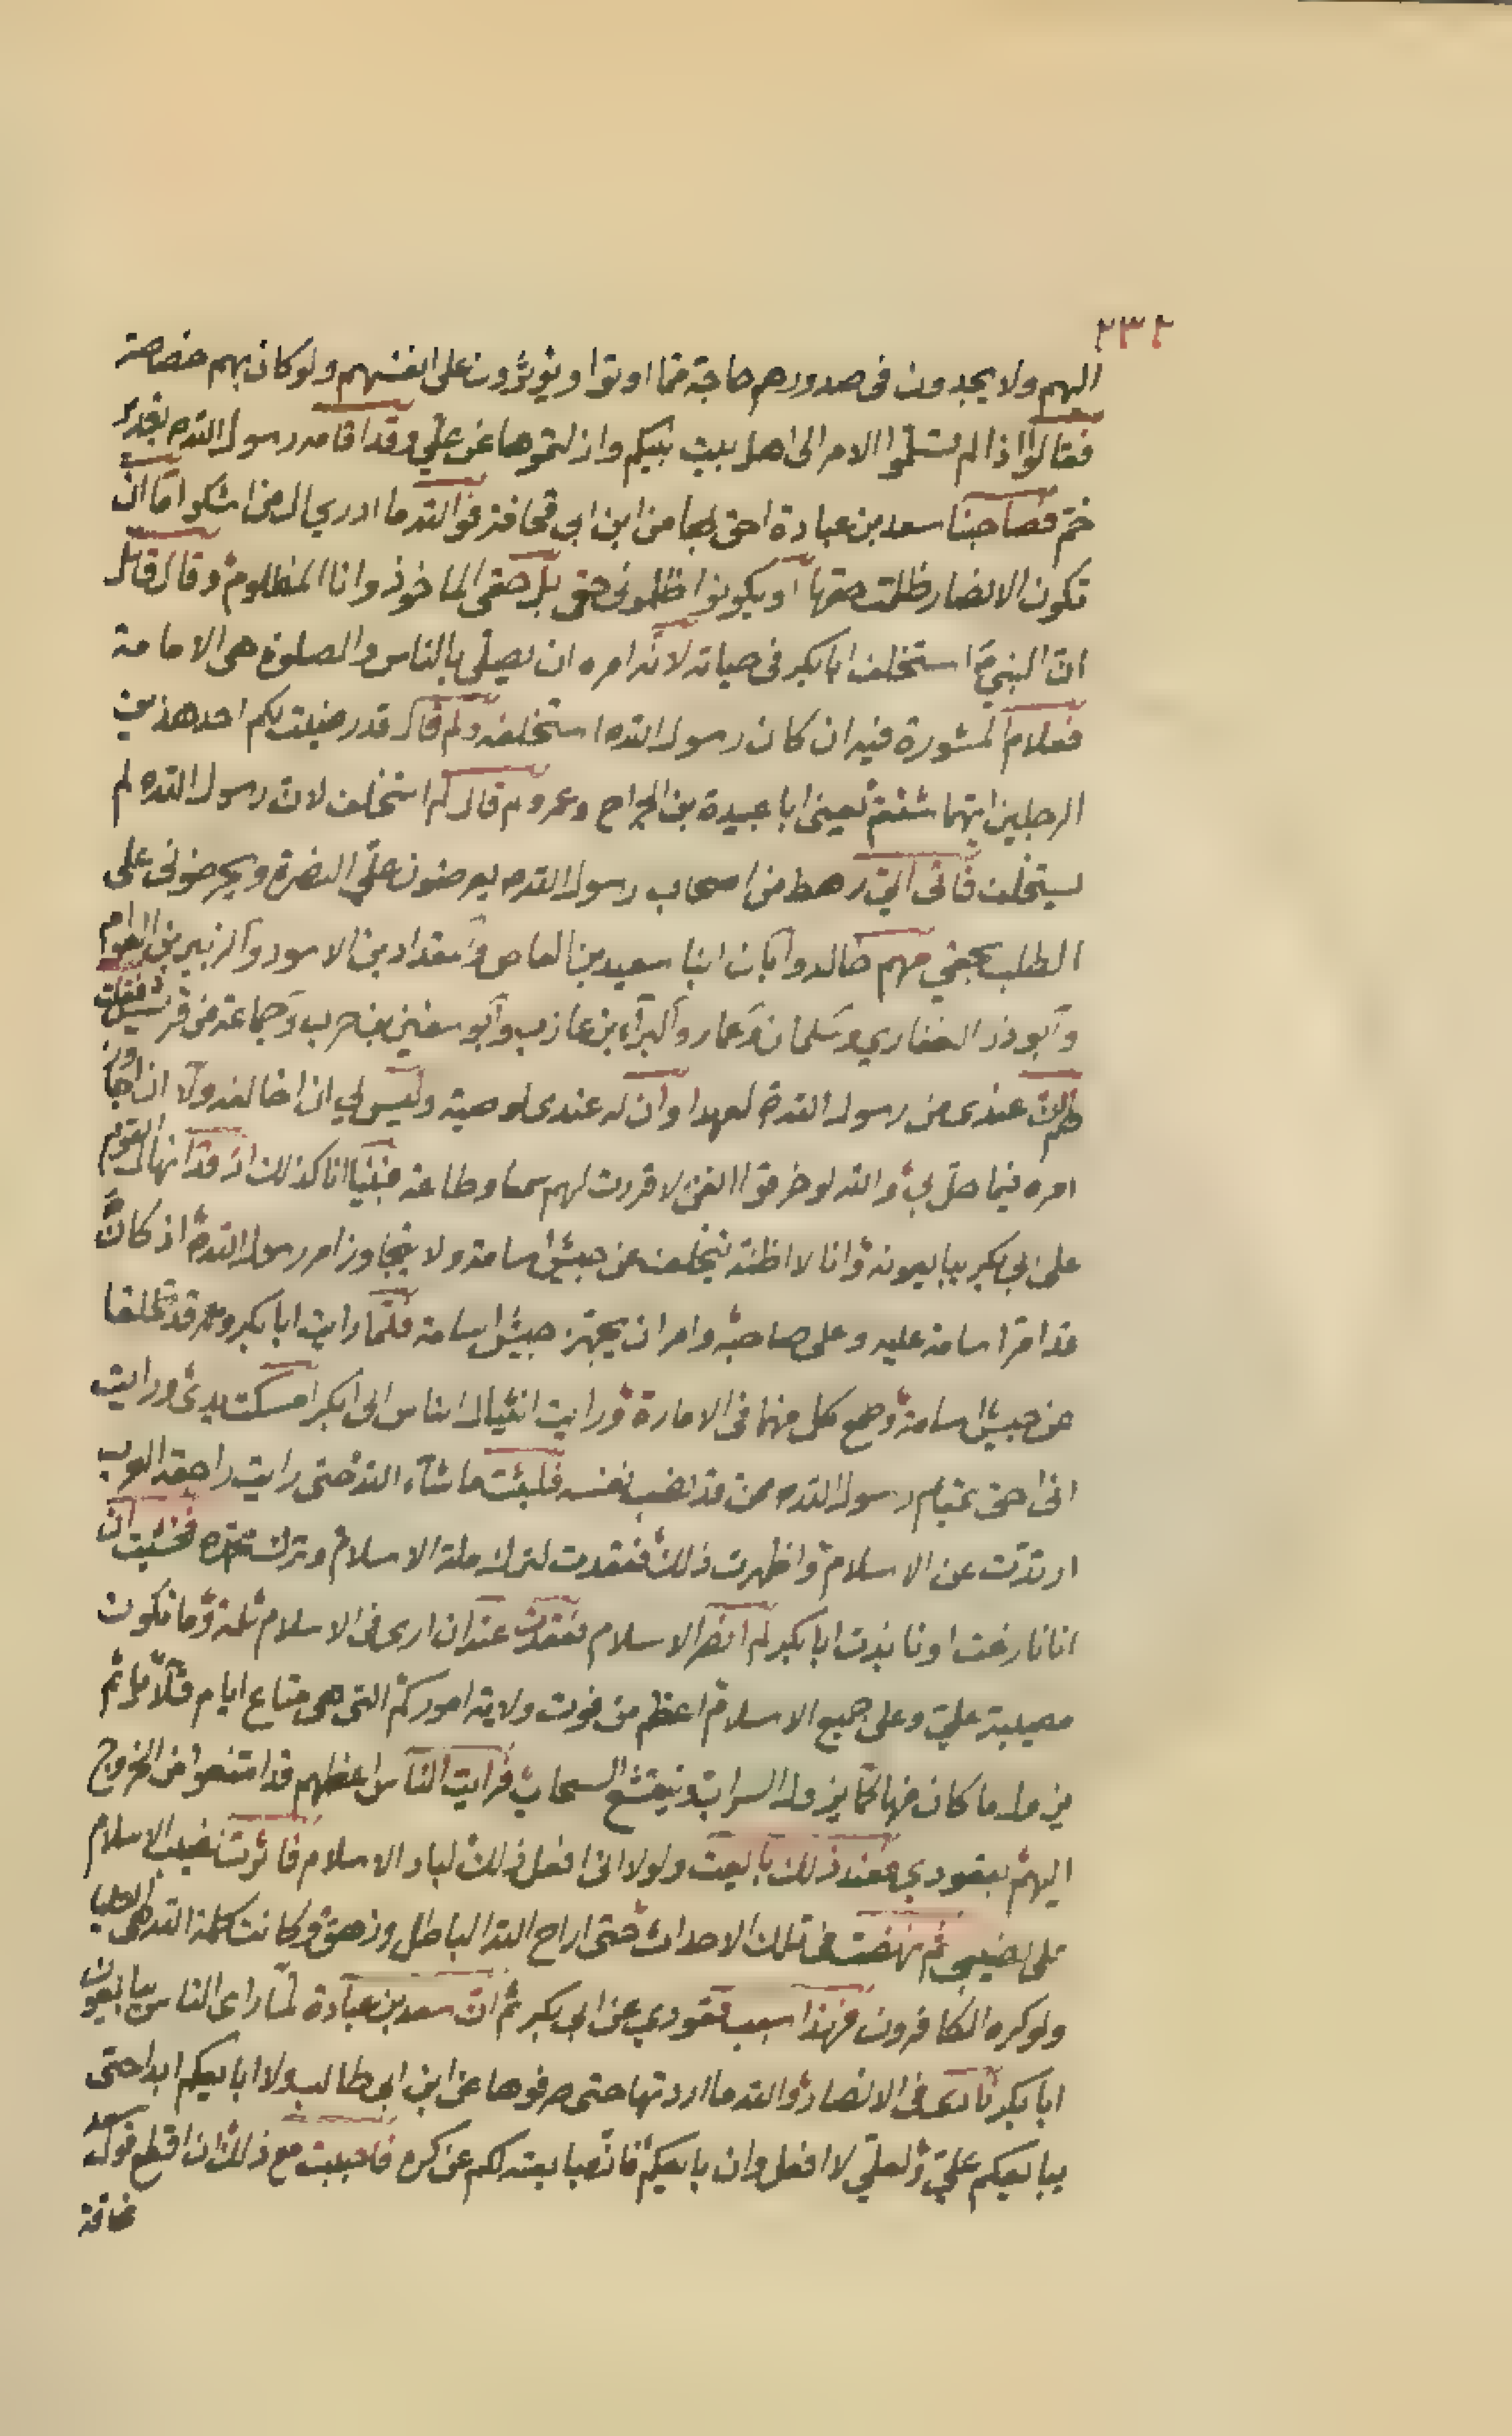 ٢٣٢
اليهم ولا يجدون فى صدورهم حاجة مما اوتوا ويؤثرون على انفسهم ولو كان بهم خصاصة
فقالوا اذا لم تسلّموا الامر الى اهل بيت نبيكم وازلتموها عن علي وقد اقامه رسول الله بغدير
خمّ فصاحبنا سعد بن عبادة احق بها من ابن ابى قحافة فوالله ما ادري الى من اشكوا امّا ان
تكون الانصار ظلمت حقها او يكونوا ظلمونى حقى بل حقى الماخوذ وانا المظلوم وقال قائل
انّ النبيّ استخلف ابا بكر فى حياته لانّه امره ان يصلّى بالناس والصلوة هى الامامة
فعلام المشورة فيه ان كان رسول الله استخلفه ولم قال قد رضيت لكم احد هذين
الرجلين ايّهما شئتم يعنى ابا عبيدة بن الجراح وعمر ولم قال لم استخلف لان رسول الله لم
يستخلف فاتى اليّ رهط من اصحاب رسول الله يعرضون عليّ النصرة ويحرضونى على
الطلب بحقي منهم خالد وابان ابنا سعيد بن العاص والمقداد بن الاسود والزبير بن العوام
وابو ذر الغفاري وسلمان وعمار والبراء بن عازب وابو سفين بن حرب وجماعة من قريش فقلت
لهم انّ عندى من رسول الله لعهدا وان له عندى لوصية وليس لي ان اخالفه ولا ان اجاوز
امره فيما حلّ بي والله لو خرموا انفى لاقررت لهم سمعا وطاعة فبينا انا كذلك اذ قد انهال القوم
على ابى بكر يبايعونه وانا لا اظنّه يتخلف عن جيش اسامة ولا يتجاوز امر رسول الله اذ كان
قد امّر اسامة عليه وعلى صاحبه وامر ان يجهّز جيش اسامة فلمّا رايت ابا بكر وعمر قد تخلفا
عن جيش اسامة وطمع كل منهما فى الامارة ورايت انثيال الناس الى ابى بكر امسكت يدى ورايت
انى احق بمقام رسول الله ممن قد نصب نفسه فلبثت ما شآء الله حتى رايت راجعة العرب
ارتدّت عن الاسلام واظهرت ذلك فنقدت لترك ملة الاسلام وترك فخشيت ان
انا نازعت او نابذت ابا بكر لم انصر الاسلام فقعدت عند ان ارى فى الاسلام ثلمة وما تكون
مصيبة عليّ وعلى جميع الاسلام اعظم من فوت ولاية اموركم التى هى متاع ايام قلائل ثم
يزول ما كان منها كما يزول السراب ويتقشع السحاب فرايت الناس اعظمهم قد امتنعوا من الخروج
اليهم بقعودي فعند ذلك بايعت ولولا انى افعل ذلك لباد الاسلام فاثرت نصيب الاسلام
على نصيبى ثم نهضت فى تلك الاحداث حتى ازاح الله الباطل وزهق وكانت كلمة الله هى العليا
ولو كره الكافرون فهذا سبب قعودي عن ابى بكر ثم انّ سعد بن عبادة لمّا راى الناس يبايعون
ابا بكر نادى فى الانصار والله ما اردتها حتى صرفوها عن ابن ابى طالب ولا ابايعكم ابدا حتى
يبايعكم عليّ ولعلّي لا افعل وان بايعكم فانّما بايعته لكم عن كره فاحببت مع ذلك ان اقطع قول سعد
مخافة